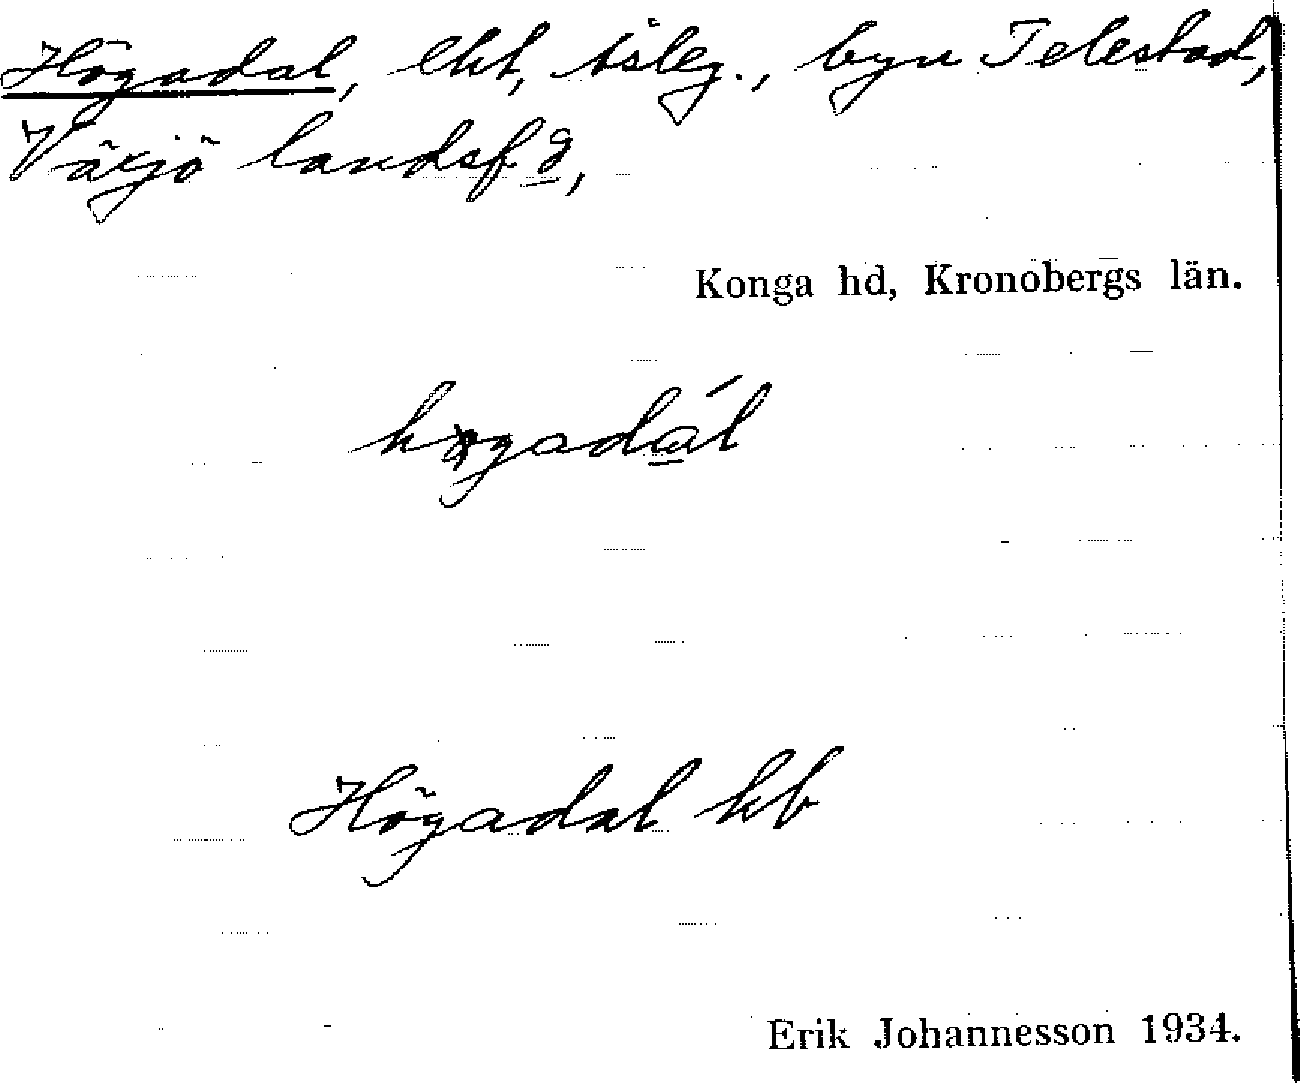 Högadal, lht, äsleg., byn Telestad,
Växjö landsfg,
Konga hd, Kronobergs län.
høgadál
Högadal kb
Erik Johannesson 1934.